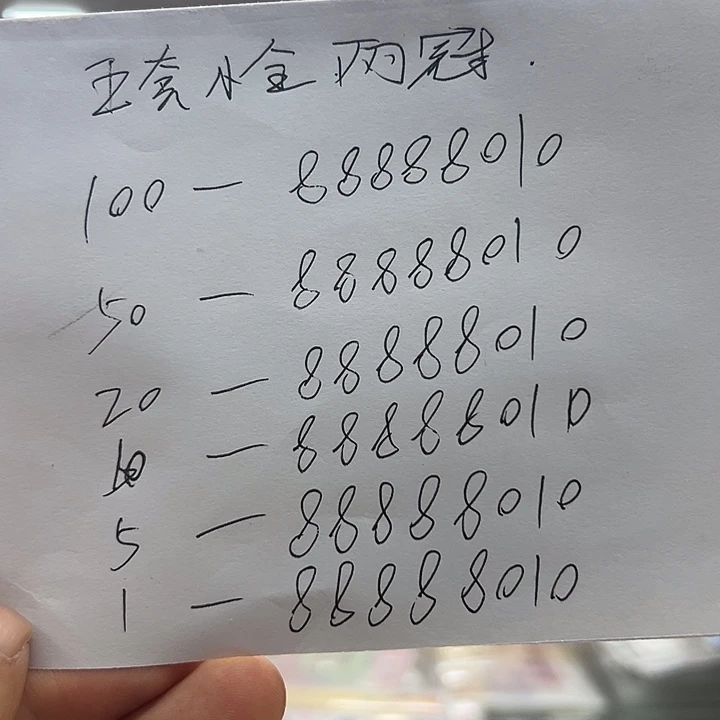 五套小全两冠.
100 — 88888010
50 — 88888010
20 — 88888010
10 — 88888010
5 — 88888010
1 — 88888010